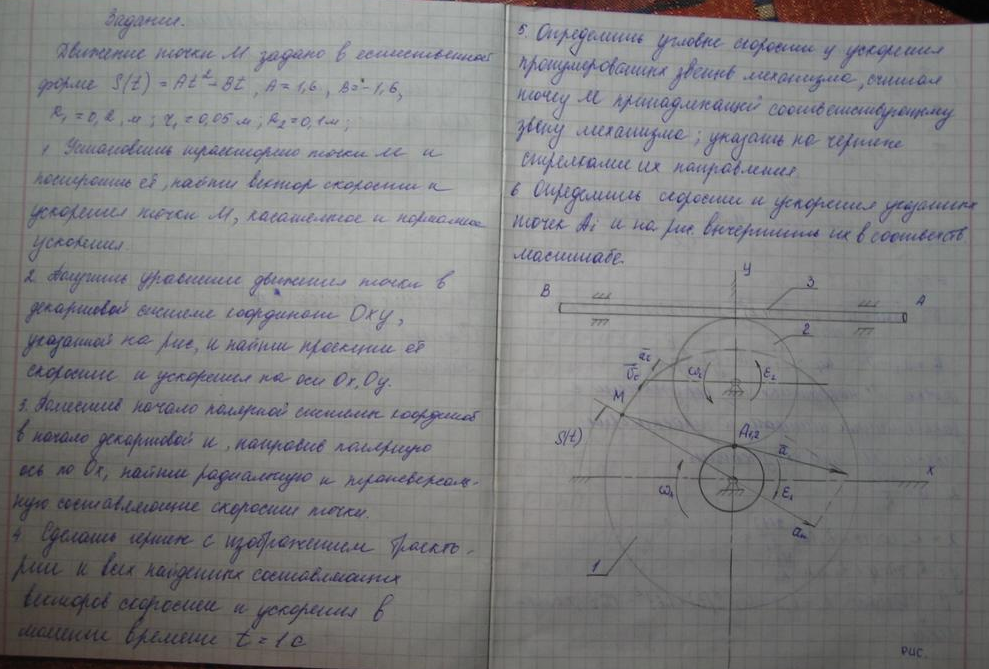 Задание.
Движение точки М задано в естественной
форме S(t) = At² - Bt, A = 1,6, B = -1,6,
R₁ = 0,2, м; r₁ = 0,05 м; R₂ = 0,1 м;
1 Установить траекторию точки М и
построить её, найти вектор скорости и
ускорения точки М, касательное и нормальное
ускорения.
2. Получить уравнение движения точки в
декартовой системе координат Oxy,
указанной на рис, и найти проекции её
скорости и ускорения на оси Ox, Oy.
3. Поместив начало полярной системы координат
в начало декартовой и, направив полярную
ось по Ox, найти радиальную и трансверсаль-
ную составляющие скорости точки.
4. Сделать чертеж с изображением траекто-
рии и всех найденных составляющих
векторов скорости и ускорения в
момент времени t = 1 с
5. Определить угловые скорости и ускорения
пронумерованных звеньев механизма, считая
точку М принадлежащей соответствующему
звену механизма; указать на чертеже
стрелками их направления.
6 Определить скорости и ускорения указанных
точек Ai и на рис. вычертить их в соответств
масштабе.
y
B
3
A
2
ω₂
ε₂
M
S(t)
A₁,₂
a
x
ω₁
ε₁
aₙ
1
рис.